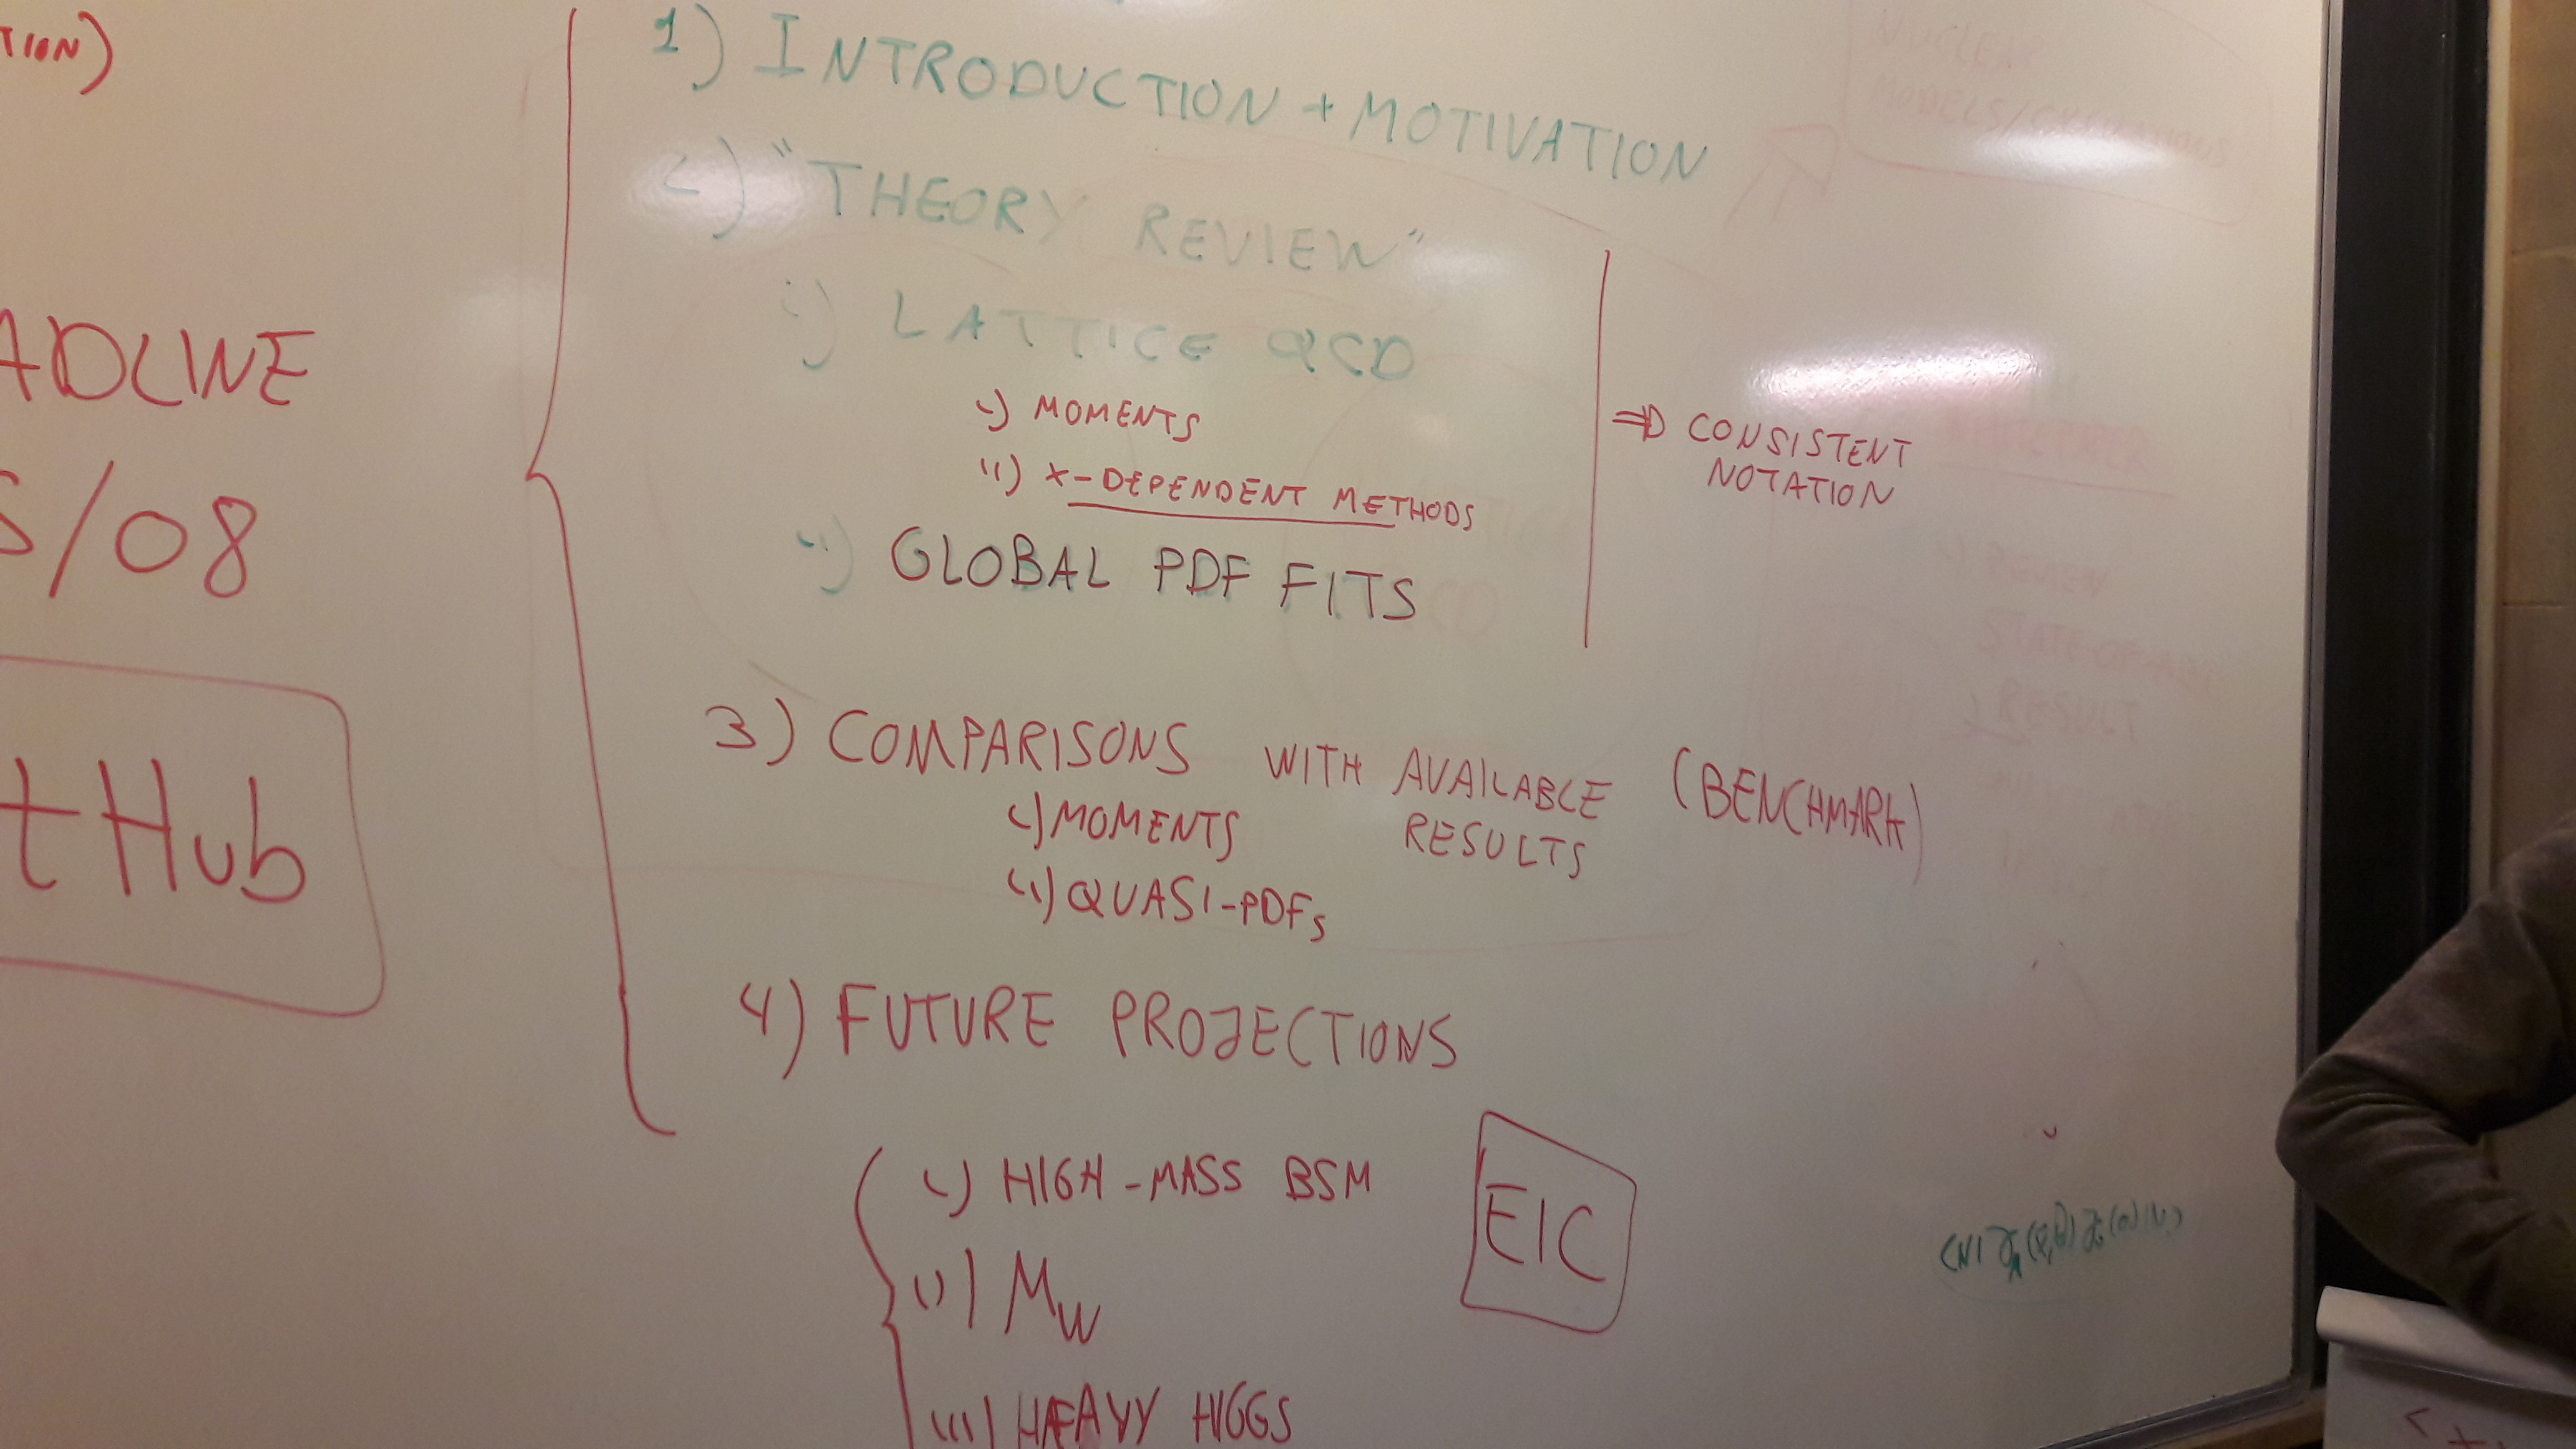 TION)
ADLINE
/08
tHub
1) INTRODUCTION + MOTIVATION
2) "THEORY REVIEW"
i) LATTICE QCD
i) MOMENTS
ii) X-DEPENDENT METHODS
ii) GLOBAL PDF FITS
⇒ CONSISTENT
NOTATION
3) COMPARISONS WITH AVAILABLE (BENCHMARK)
RESULTS
i) MOMENTS
ii) QUASI-PDFs
4) FUTURE PROJECTIONS
i) HIGH-MASS BSM
ii) MW
iii) HEAVY HIGGS
EIC
NUCLEAR
MODELS/
REVIEW
STATE-OF-ART
RESULT